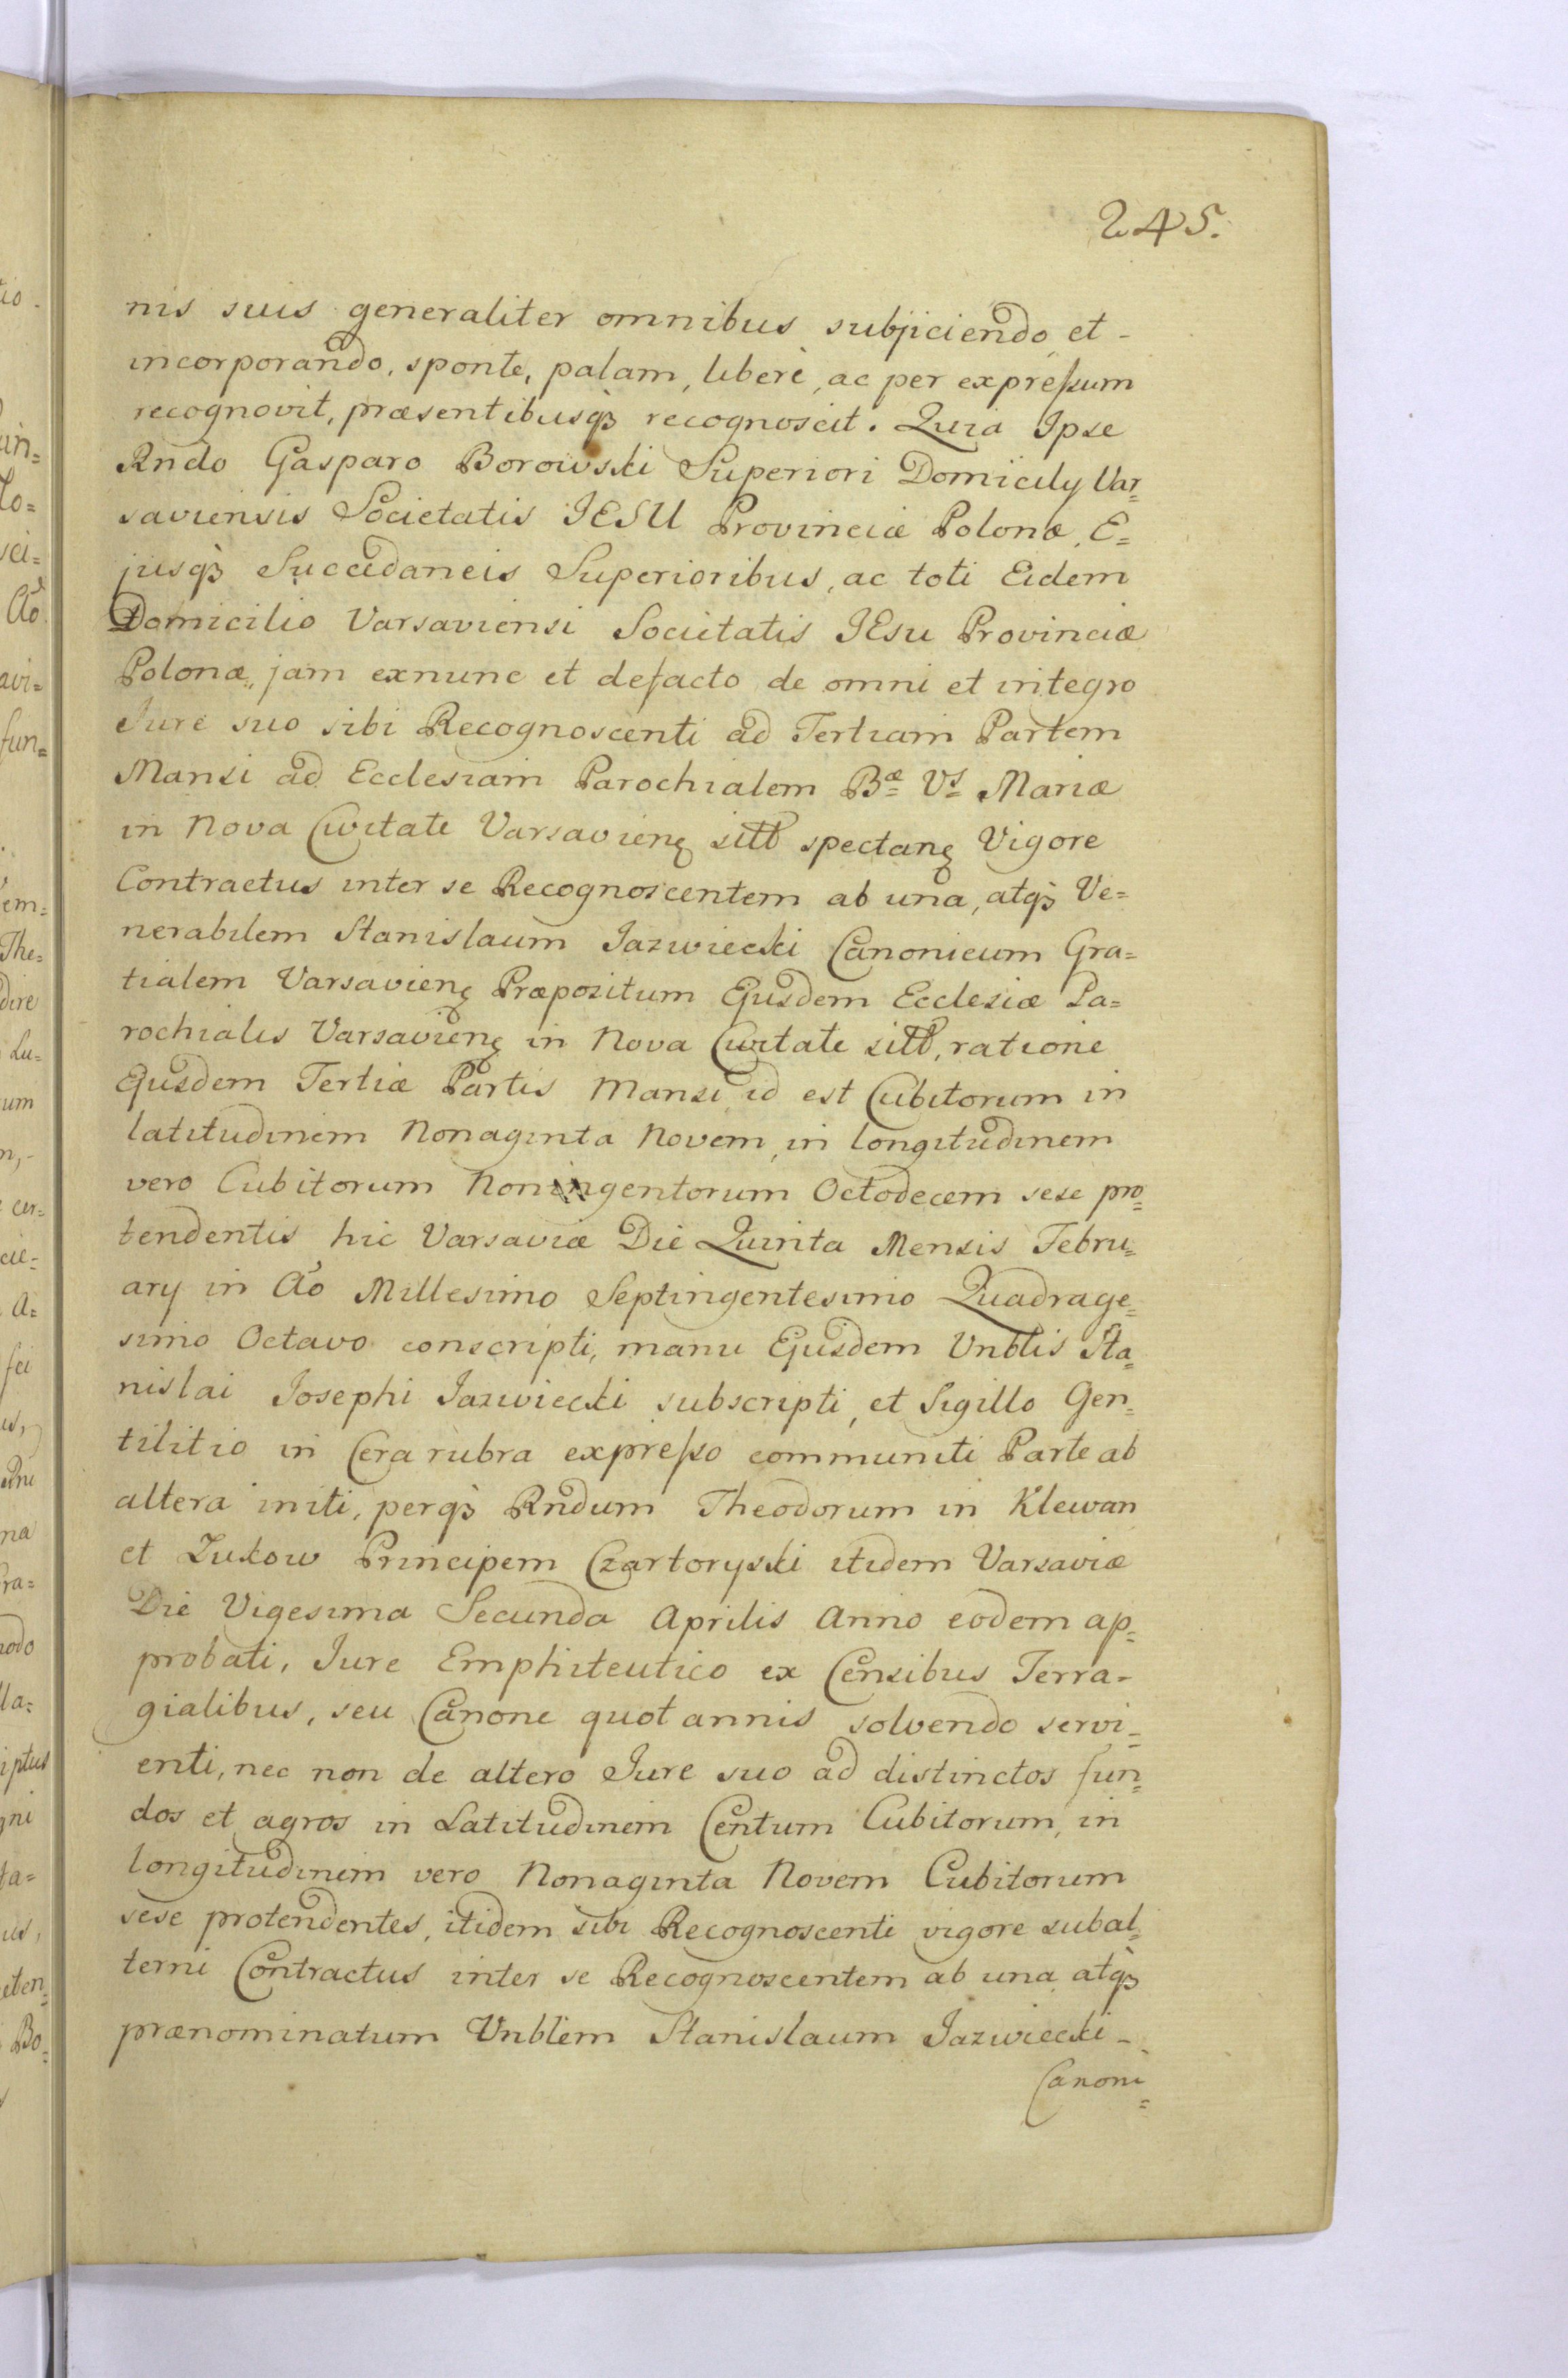 245.
nis suis generaliter omnibus subjiciendo et -
incorporando, sponte, palam, liberè, ac per expreſsum
recognovit, præsentibusq₃ recognoscit. Quia Ipse
Rndo Gasparo Borowski Superiori Domicily Var=
saviensis Societatis IESU Provinciæ Polonæ, E=
jusq₃ Succedaneis Superioribus, ac toti Eidem
Domicilio Varsaviensi Societatis IEsu Provinciæ
Polonæ, jam exnunc et defacto de omni et integro
Jure suo sibi Recognoscenti ad Tertiam Partem
Mansi ad Ecclesiam Parochialem Bæ Vs Mariæ
in Nova Civitate Varsavienȩ sitt spectanȩ Vigore
Contractus inter se Recognoscentem ab una, atq₃ Ve=
nerabilem Stanislaum Jazwiecki Canonicum Gra=
tialem Varsavienȩ Præpositum Ejusdem Ecclesiæ Pa=
rochialis Varsavienȩ in Nova Civitate sitt, ratione
Ejusdem Tertiæ Partis Mansi id est Cubitorum in
latitudinem Nonaginta Novem, in longitudinem
vero Cubitorum Noningentorum Octodecem sese pro=
tendentis hic Varsaviæ Die Quinta Mensis Febru=
ary in Ao Millesimo Septingentesimo Quadrage=
simo Octavo conscripti, manu Ejusdem Vnblis Sta=
nislai Josephi Jazwiecki subscripti, et Sigillo Gen=
tilitio in Cera rubra expreſso communiti Parte ab
altera initi, perq₃ Rndum Theodorum in Klewan
et Zukow Principem Czartoryski itidem Varsaviæ
Die Vigesima Secunda Aprilis Anno eodem ap=
probati, Jure Emphiteutico ex Censibus Terra-
gialibus, seu Canone quot annis solvendo servi=
enti, nec non de altero Jure suo ad distinctos fun=
dos et agros in Latitudinem Centum Cubitorum, in
longitudinem vero Nonaginta Novem Cubitorum
sese protendentes, itidem sibi Recognoscenti vigore subal=
terni Contractus inter se Recognoscentem ab una atq₃
prænominatum Vnblem Stanislaum Jazwiecki -
Canoni=